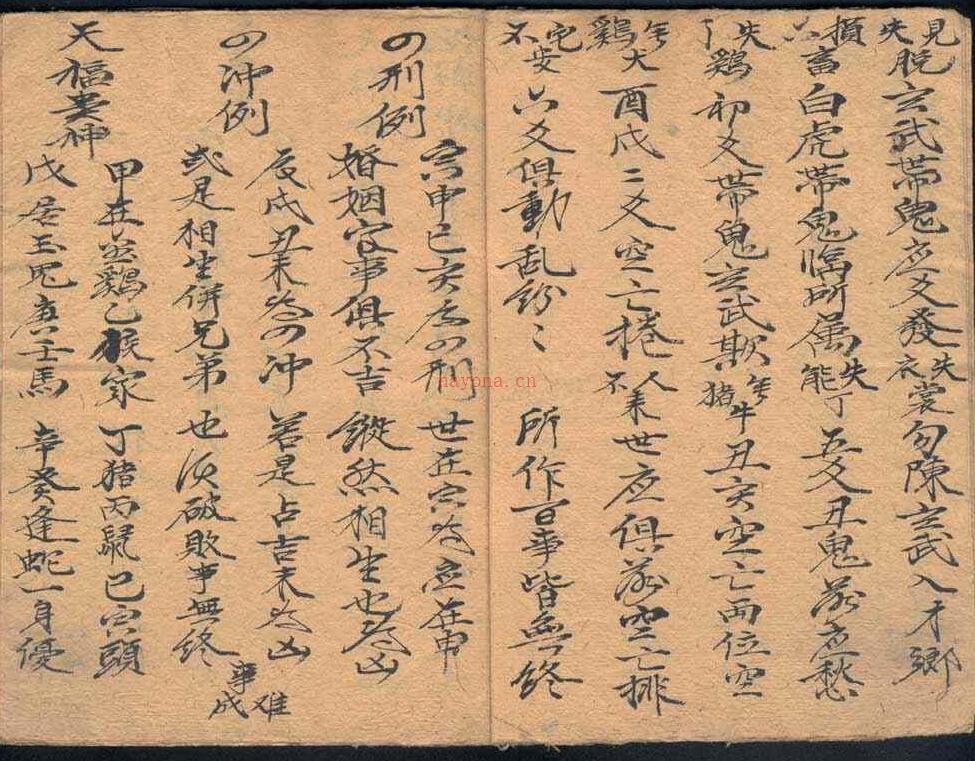 見失脱玄武帶鬼应爻發失衣裳勾陳玄武入才鄉
損六畜白虎帶鬼臨所属失能丁五爻丑鬼落应愁
失了鷄初爻帶鬼玄武欺無猪牛丑亥空亡両位空
無鷄犬酉戍二爻空亡捲人不来世应俱落空亡排
宅不安六爻俱動乱紛〻所作百事皆無終
四刑例
寅申巳亥為四刑世在寅為应在申
婚姻官事俱不吉縱然相生也為凶
四冲例
辰戍丑未為四冲若是占吉未為凶
或是相生併兄弟也須破敗事無終
事难成
天福貴神
甲在金鷄乙猴家丁猪丙鼠已寅頭
戊居玉兎庚壬馬辛癸逢蛇一身優
nayona.cn